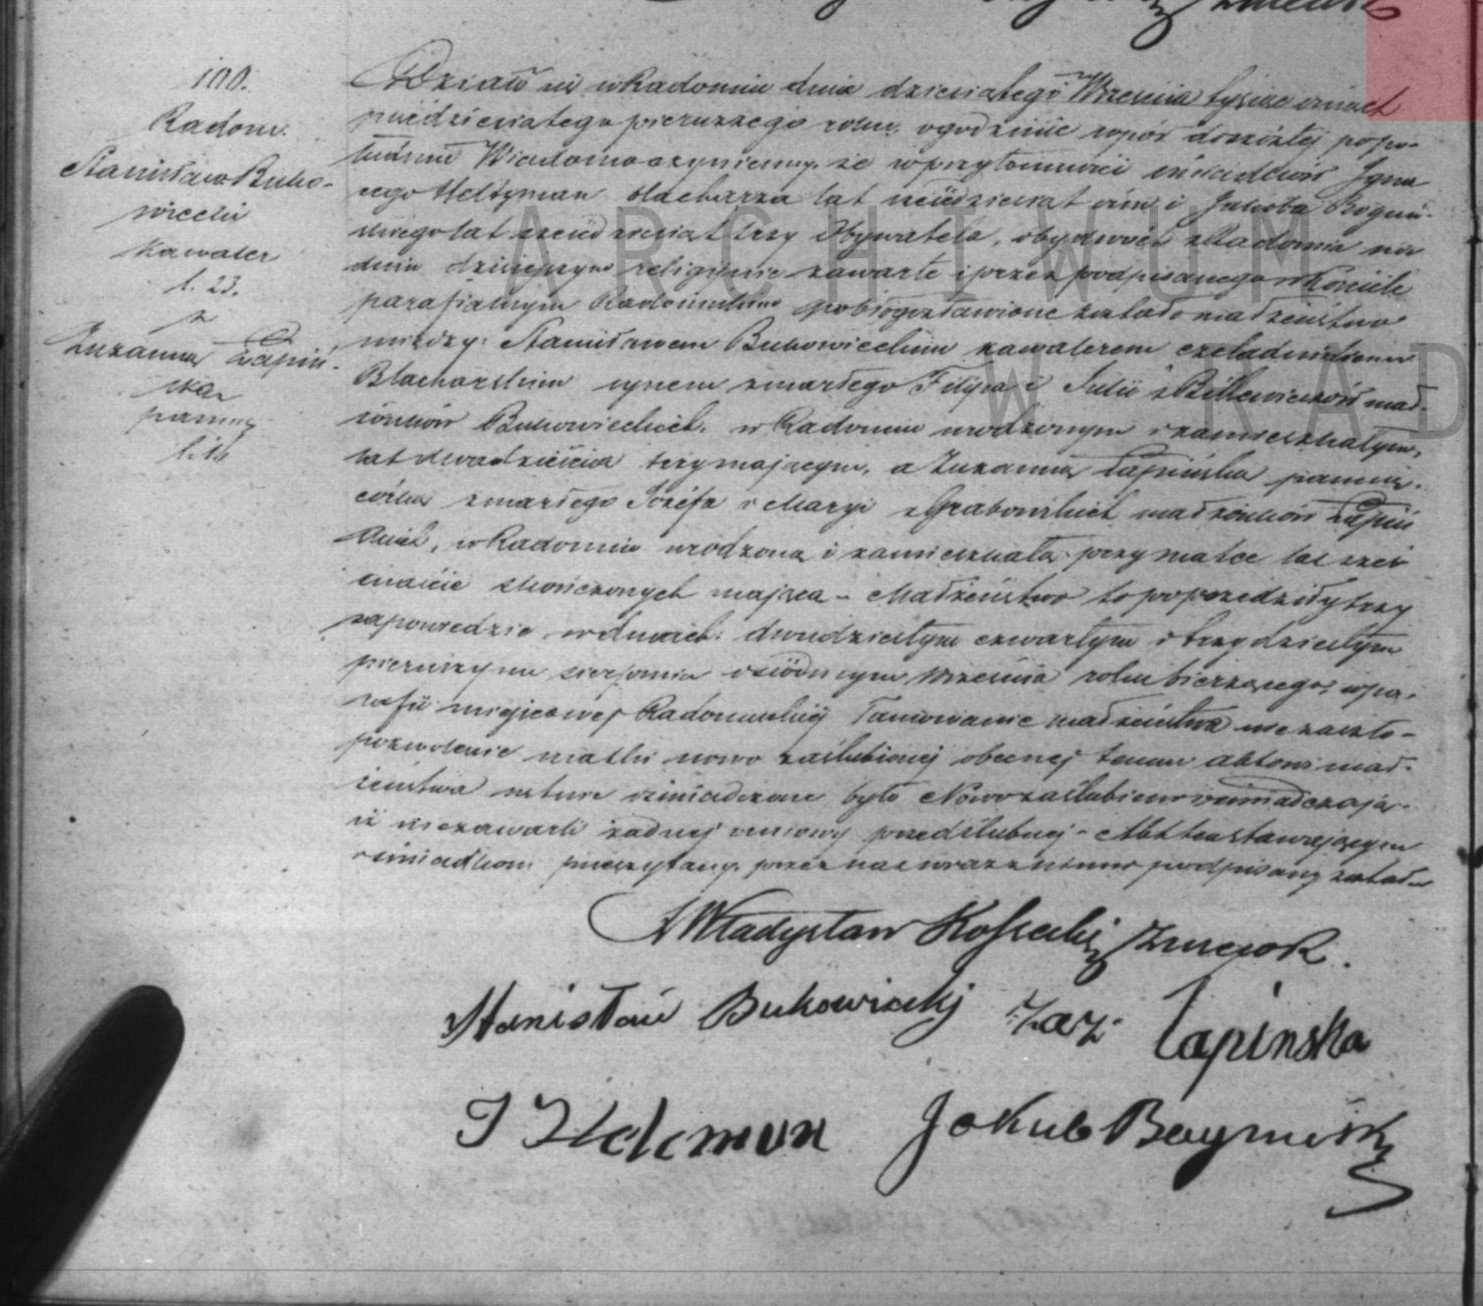 100.
Radom.
Stanisław Buko-
wiecki
kawaler
l. 23.
z
Zuzanna Łapiń-
ska
panną
l. 16
Działo się w Radomiu dnia dziesiątego Września tysiąc ośmset
pięćdziesiątego pierwszego roku, o godzinie wpół do szóstej popo-
łudniu Wiadomo czyniemy, że w przytomności świadków Igna
cego Heltzman blacharza lat i Jakóba
lat sześćdziesiąt trzy Obywatela, obydwóch z Radomia na
dniu dzisiejszym religijnie zawarte i przez podpisanego w Kościele
parafialnym Radomskim pobłogosławione zostało małżeństwo
między: Stanisławem Bukowieckim kawalerem czeladnikiem
Blacharskim synem zmarłego Filipa i Julii z małż-
żonków Bukowieckich, w Radomiu urodzonym i zamieszkałym,
lat dwadzieścia trzy mającym, a Zuzanną Łapińską panną,
córką zmarłego Józefa i Maryi z Grabowskich małżonków Łapiń
skich, w Radomiu urodzoną i zamieszkałą przy matce lat szes
naście skończonych mającą - Małżeństwo to poprzedziły trzy
zapowiedzie w dniach: dwudziestym czwartym i trzydziestym
pierwszym sierpnia i siódmym Września roku bieżącego, w pa-
rafii miejscowej Radomskiej Tamowanie małżeństwa nie zaszło -
pozwolenie matki nowo zaślubionej obecnej temu aktowi mał-
żeństwa ustnie oświadczone było Nowozaślubieni oświadczają
iż nie zawarli żadnej umowy przedślubnej - Akt ten stawającym
i świadkom przeczytany, przez nas wraz z niemi podpisany został
X Władysław Kossecki
Stanisław Bukowiecki Zaz: Łapinska
J Jakub